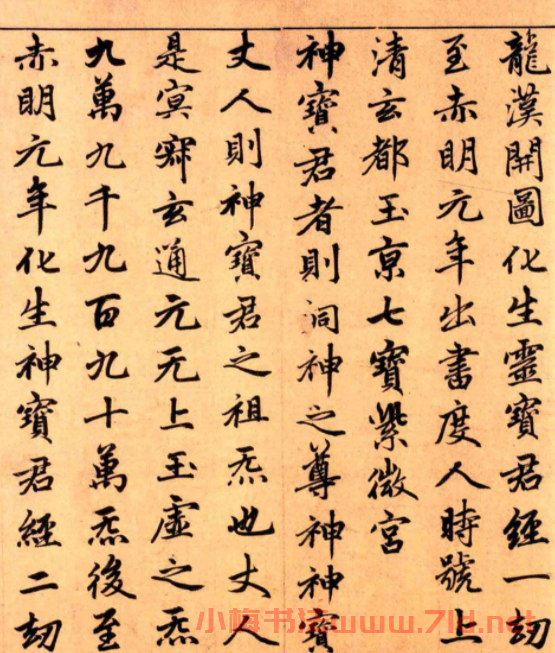 龍漢開圖化生靈寶君經一劫
至赤明元年出書度人時號上
清玄都玉京七寶紫微宮
神寶君者則洞神之尊神神寶
丈人則神寶君之祖炁也丈人
是冥寂玄通元无上玉虛之炁
九萬九千九百九十萬炁後至
赤明元年化生神寶君經二劫
小梅书法www.7ld.net